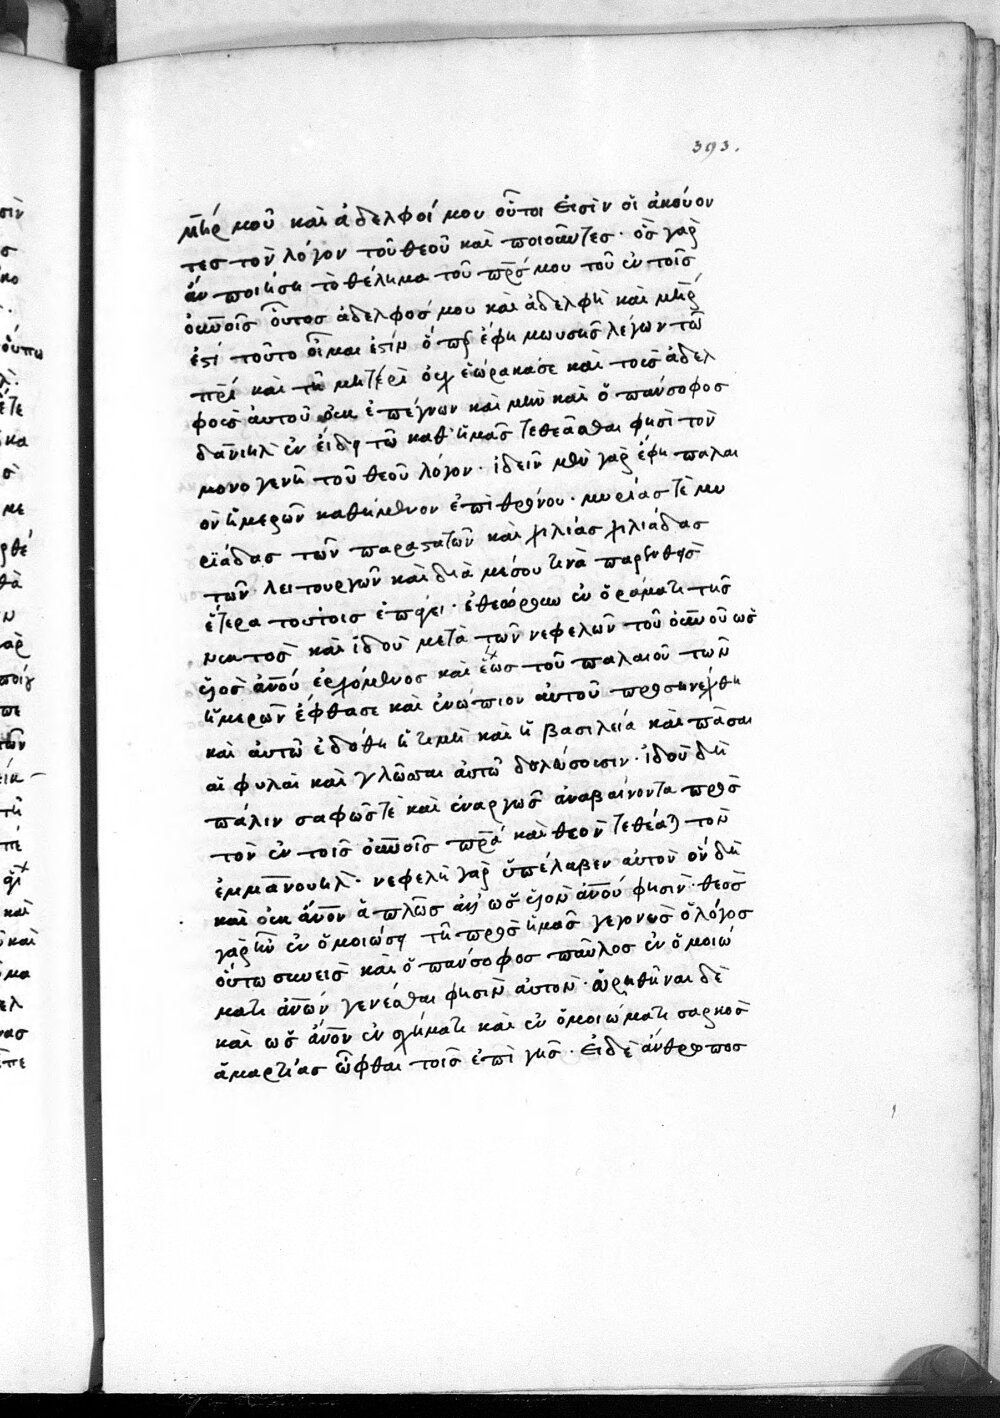 393.
μ̅η̅ρ̅ μοῦ καὶ ἀδελφοί μου οὗτοι εἰσὶν οἱ ἀκούον
τες τὸν λόγον τοῦ θεοῦ καὶ ποιοῦντες· ὃς γὰρ
ἂν ποιήση τὸ θέλημα τοῦ π̅ρ̅ς μου τοῦ ἐν τοῖς
ο̅υ̅ν̅οῖς οὗτος ἀδελφός μου καὶ ἀδελφὴ καὶ μ̅η̅ρ̅
ἐστί τοῦτο οἶμαι ἐστὶν ὅπερ ἔφη μωυσῆς λέγων τῶ
π̅ρ̅ί καὶ τῆ μητέρι οὐχ ἑώρακάσε καὶ τοὺς ἀδελ
φοὺς αὐτοῦ οὐκ ἐπέγνων καὶ μὴν καὶ ὁ πάνσοφος
δανιὴλ ἐν εἴδει τῶ καθ' ἡμᾶς τεθεᾶσθαι φησὶ τὸν
μονογενῆ τοῦ θεοῦ λόγον· ἰδεῖν μὲν γὰρ ἔφη παλαι
ὸν ἡμερῶν καθήμενον ἐπὶ θρόνου· μυρίας τὲ μυ
ριάδας τῶν παραστατῶν καὶ χιλίας χιλιάδας
τῶν λειτουργῶν καὶ διὰ μέσου τινὰ παρενθεὶς
ἕτερα τούτοις ἐπῄει· ἐθεώρουν ἐν ὁράματι τῆς
νυκτὸς καὶ ἰδοὺ μετὰ τῶν νεφελῶν τοῦ ο̅υ̅ν̅οῦ ὡς
υἱὸς ἀ̅ν̅ο̅ύ ἐρχόμενος καὶ ἕως τοῦ παλαιοῦ τῶν
ἡμερῶν ἔφθασε καὶ ἐνώπιον αὐτοῦ προσηνέχθη
καὶ αὐτῶ ἐδόθη ἡ τιμὴ καὶ ἡ βασιλεία καὶ πᾶσαι
αἱ φυλαὶ καὶ γλῶσσαι αὐτῶ δουλεύσουσιν· ἰδοὺ δὴ
πάλιν σαφῶς τὲ καὶ ἐναργῶς ἀναβαίνοντα πρὸς
τὸν ἐν τοῖς ο̅υ̅ν̅οῖς π̅ρ̅α καὶ θεὸν τεθέαται τὸν
ἐμμανουήλ· νεφέλη γὰρ ὑπέλαβεν αὐτὸν οὐ δὴ
καὶ οὐκ ἄ̅ν̅ο̅ν ἁπλῶς ἀλλ' ὡς υἱὸν ἀ̅ν̅ο̅ύ φησὶν· θεὸς
γὰρ ἦν ἐν ὁμοιώσει τῆ πρὸς ἡμᾶς γεγονὼς ὁ λόγος
οὕτω συνεὶς καὶ ὁ πάνσοφος παῦλος ἐν ὁμοιώ
ματι ἀ̅ν̅ω̅ν γενέσθαι φησὶν αὐτὸν· εὑρεθῆναι δὲ
καὶ ὡς ἄ̅ν̅ο̅ν ἐν σχήματι καὶ ἐν ὁμοιώματι σαρκὸς
ἁμαρτίας ὦφθαι τοῖς ἐπὶ γῆς· Εἰ δὲ ἄνθρωπος